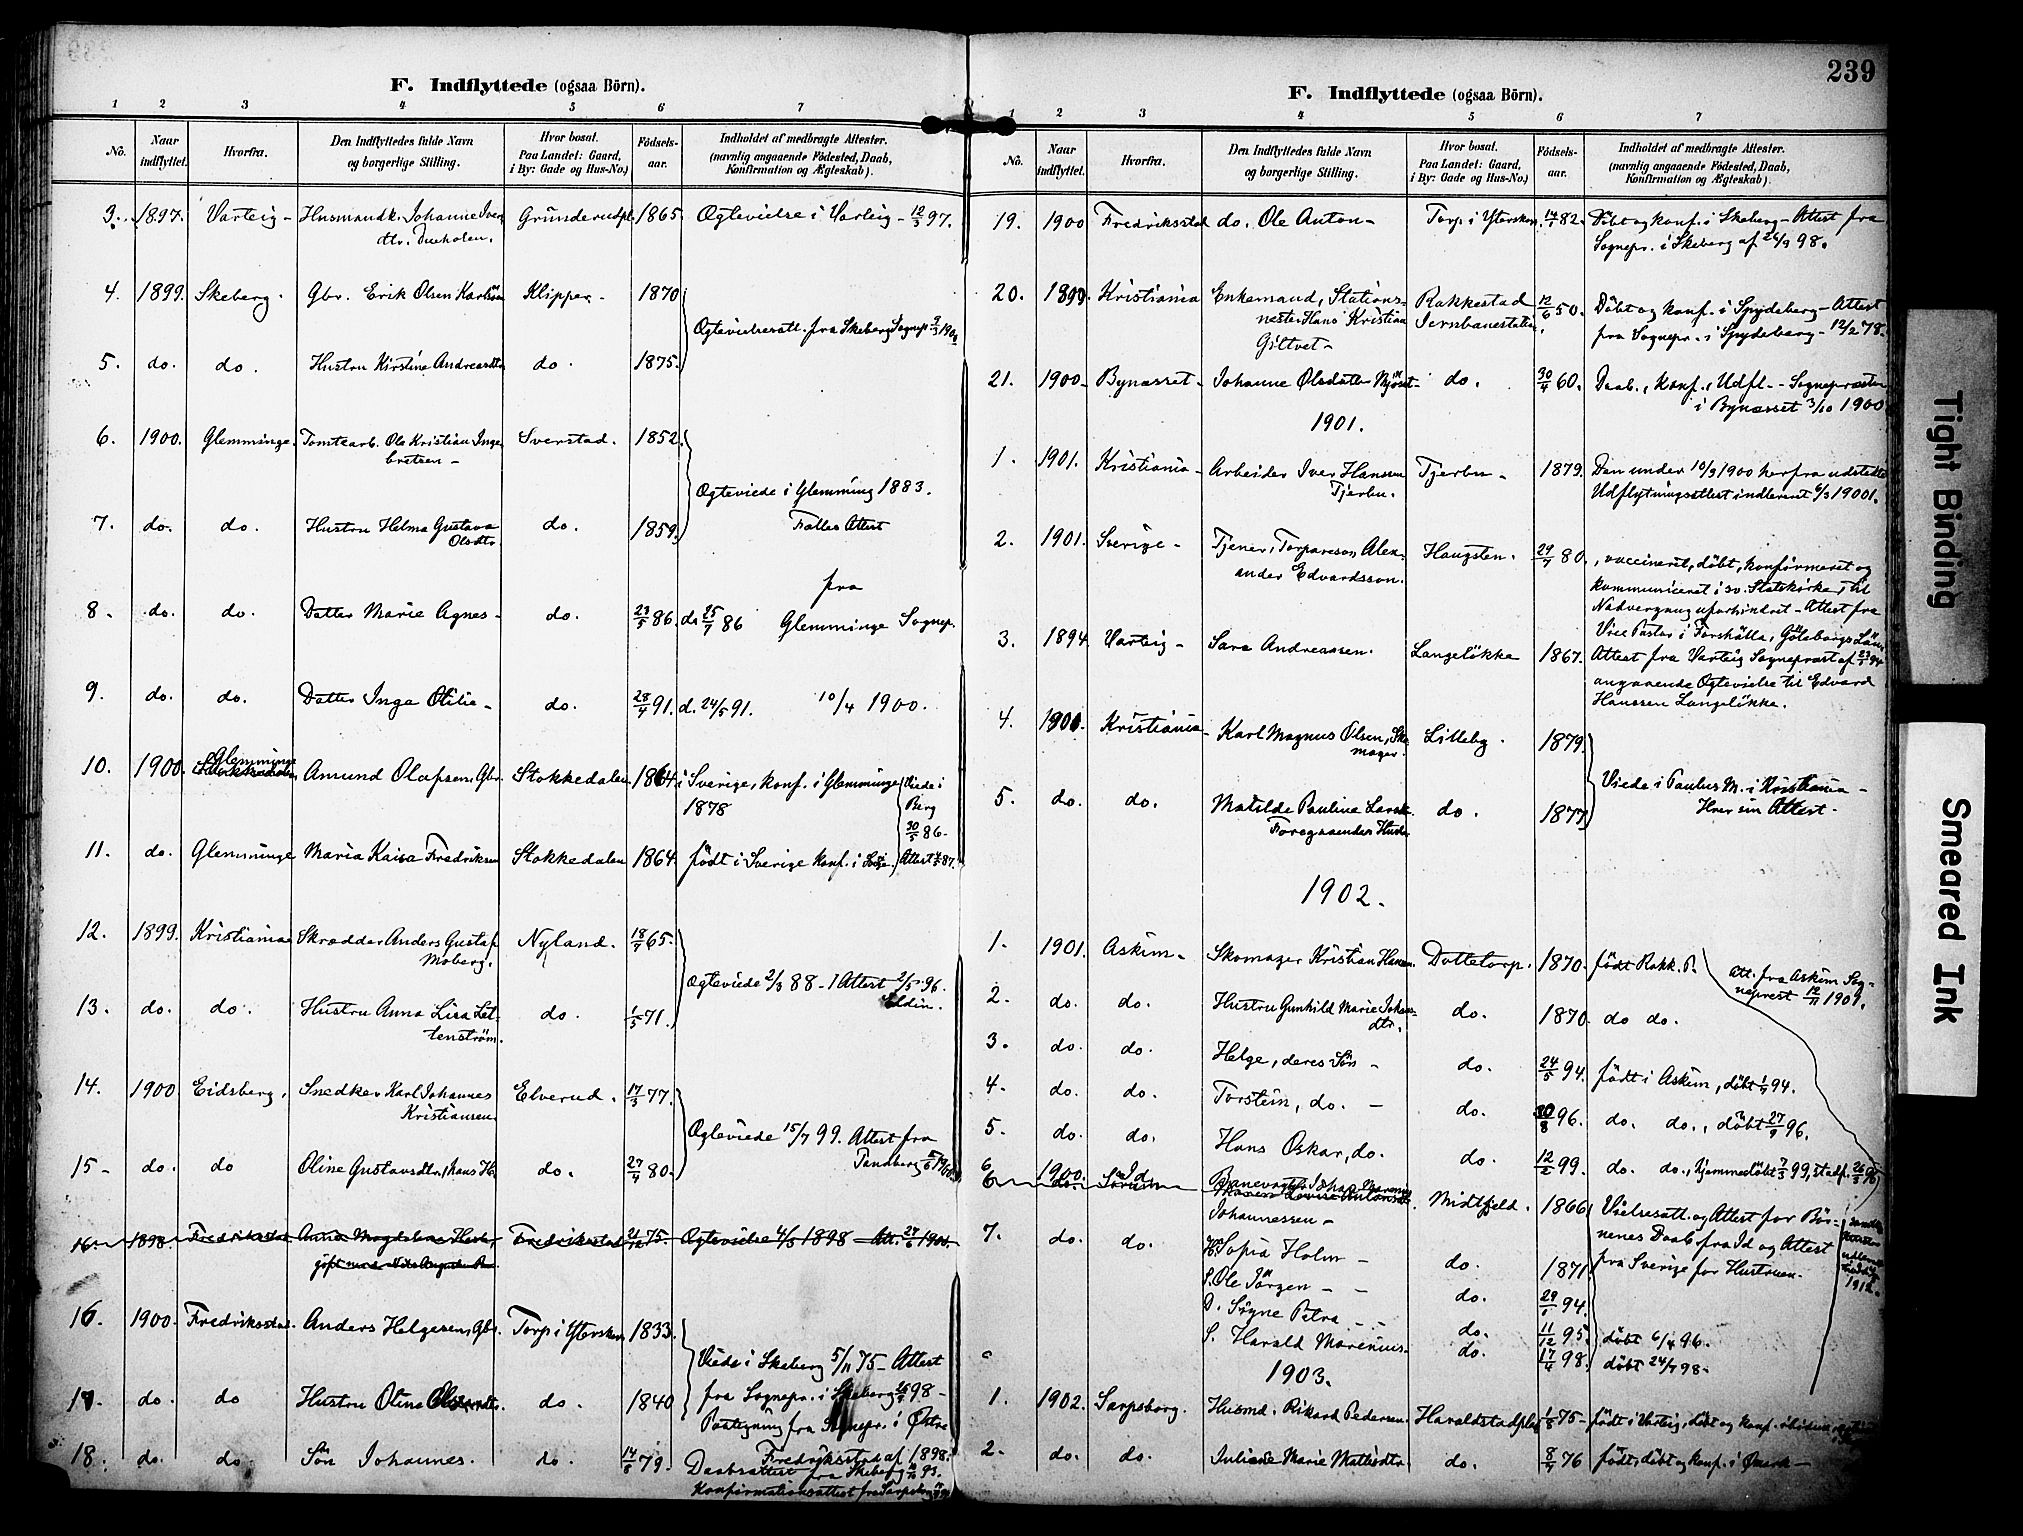 F. Indflyttede (ogsaa Börn).
1 2 3 4 5 6 7
No. Naar indflyttet. Hvorfra. Den Indflyttedes fulde Navn og borgerlige Stilling. Hvor bosat. Paa Landet: Gaard, i By: Gade og Hus-No.) Födsels-aar. Indholdet af medbragte Attester. (navnlig angaaende Födested, Daab, Konfirmation og Ægteskab).
3. 1897. Varteig - Husmandk. Johanne Iver Grunderudpl. 1865. Ogtevielse i Varteig - 12/3 97.
dtr.
4. 1899. Skeberg. Gbr. Erik Olsen Karlsöen Klipper - 1870
Ogtevielsesatt. fra Skeberg Sognepr.
5. do. do. Hustru Kirstine Andreasdtr do. 1875.
6. 1900. Glemminge. Tomtearb. Ole Kristian Inge Sverstad. 1852.
bretsen -
Ogteviede i Glemming 1883.
7. do. do. Hustru Helma Gustava do. 1859. Fælles Attest
Olsdtr.
fra
8. do. do. Datter Marie Agnes - do. 23/5 86. d. 25/7 86 Glemminge Sognepr.
9. do. do. Datter Inga Otilie - do. 28/4 91. d. 24/5 91. 10/4 1900.
10. 1900. Glemminge Amund Olafsen, Gbr. Stokkedalen 1864. i Sverige, konf. i Glemminge Viede i
1878 Berg
30/5 86.
11. do. Glemminge Maria Kaisa Fredriksen Stokkedalen 1864. födt i Sverige konf. i
12. 1899. Kristiania Skrædder Anders Gustaf Nyland. 18/7 65.
Moberg.
Ogteviede 2/3 88 - Attest 2/5 96.
13. do. do. Hustru Anna Lisa Let- do. 1/5 71. Eldin.
tenström.
14. 1900 Eidsberg. Snedker Karl Johannes Elverud. 17/3 77.
Kristiansen.
Ogteviede 15/7 99. Attest fra
15 - do. do Oline Gustavsdtr, hans H. do. 27/4 80.
16. 1898. Fredriksstad Anna Magdalene Fredriksstad 21/12 75. Ogtevielse 4/5 1898 Att. 27/6 1900.
gift med Nils August
16 1900. Fredriksstad Anders Helgesen, Gbr. Torp i Yterskov 1833.
Viede i Skeberg 5/11 75 - Attest
fra Sognepr. i Skeberg 98 -
17. do. do Hustru Oline do. 1840
Paategning fra Sognepr. i Östre
18. do. do. Sön Johannes. do. 14/6 79. Fredriksstad af 1898.
Daabsattest fra Skeberg 93.
Konfirmationsattest fra Sarpsborg
239
F. Indflyttede (ogsaa Börn).
1 2 3 4 5 6 7
No. Naar indflyttet. Hvorfra. Den Indflyttedes fulde Navn og borgerlige Stilling. Hvor bosat. Paa Landet: Gaard, i By: Gade og Hus-No.) Födsels-aar. Indholdet af medbragte Attester. (navnlig angaaende Födested, Daab, Konfirmation og Ægteskab).
19. 1900 Fredriksstad do. Ole Anton - Torp i Yterskov. 14/7 82. Döbt og konf. i Skeberg - Attest fra
Sognepr. i Skeberg af 26/9 98.
20. 1899. Kristiania Enkemand, Stations- Rakkestad 12/6 50. Döbt og konf. i Spydeberg - Attest
mester Hans Kristian Jernbanestation. fra Sognepr. i Spydeberg - 12/2 78.
Giltvet -
21. 1900 - Bynæsset - Johanne Olsdatter do. 30/4 60. Daab., Konf., Udfl - Sognepræsten
i Bynæsset 3/10 1900
1901.
1. 1901. Kristiania - Arbeider Iver Hansen Tjerbu - 1879. Den under 10/9 1900 herfra udstedte
Tjerbu. Udflytningsattest indleveret 6/3 1901.
2. 1901. Sverige - Tjener, Torpareson Alex- Haugsten. 29/7 80. , vaccineret, döbt, konfirmeret og
ander Edvardsson. kommuniceret i sv. Statskirke, til
Nadvergang uforhindret - Attest fra
Vice Pastor i Forshälla, Göteborgs Län
3. 1894. Varteig - Sara Andreassen. Langelökke 1867. Attest fra Varteig Sogneprest af
angaaende Ogtevielse til Edvard
Hanssen Langelökke.
4. 1901. Kristiania - Karl Magnus Olsen, Sko- Lilleby. 1879.
mager.
Viede i Paulus M. i Kristiania -
5. do. do. Matilde Pauline do. 1877 Hver sin Attest -
Foregaaendes Hustru
1902.
1. 1901. Askim - Skomager Kristian Hansen. Dattetorp. 1870. födt Rakk. P. Att. fra Askim Sog-
neprest 12/11 1901.
2. do. do. Hustru Gunhild Marie Johans- do. 1870. do do.
dtr.
3. do. do. Helge, deres Sön - do. 24/5 94. födt i Askim, döbt 1/7 94.
4. do. do. Torstein, do. - do. 30/8 96. do. do., döbt 27/9 96.
5. do. do. Hans Oskar, do. do. 12/2 99. do. do., hjemmedöbt 7/3 99, stadf.
6 1900. Id. Banevogter Johan
Johannessen - Midtfjeld. 1866 Vielsesatt. og Attest for Bör-
7. do. do. H. Sofia Holm - do. 1871 nenes Daab fra Id og Attest
fra Sverige for Hustruen.
S. Ole Jörgen - - do. 29/1 94.
D. Signe Petra - - do. 11/12 95. döbt 6/4 96.
S. Harald Marenius - do. 17/4 98. döbt 24/7 98.
1903.
1. 1902. Sarpsborg. Husmd. Rikard Pedersen Haraldstadpl. 1/8 75 - födt i Varteig, döbt og konf.
2. do. do. Juliane Marie Mathisdtr do. 8/7 76 födt, döbt og konf. i Ømark -
Tight Binding
Smeared Ink